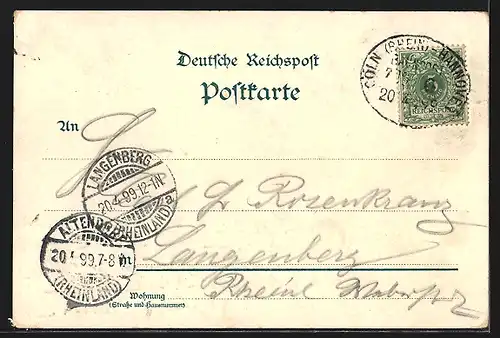 Deutsche Reichspost
Postkarte
CÖLN (RHEIN) HANNOVER
20
5
REICHSPOST
An
Rosenkranz
LANGENBERG
20.4.99.12-1N
(RHEINLAND) a
Langenberg
ALTENDORF
20.4.99.7-8N
(RHEINLAND)
Rheinl
Wohnung
(Straße und Hausnummer)